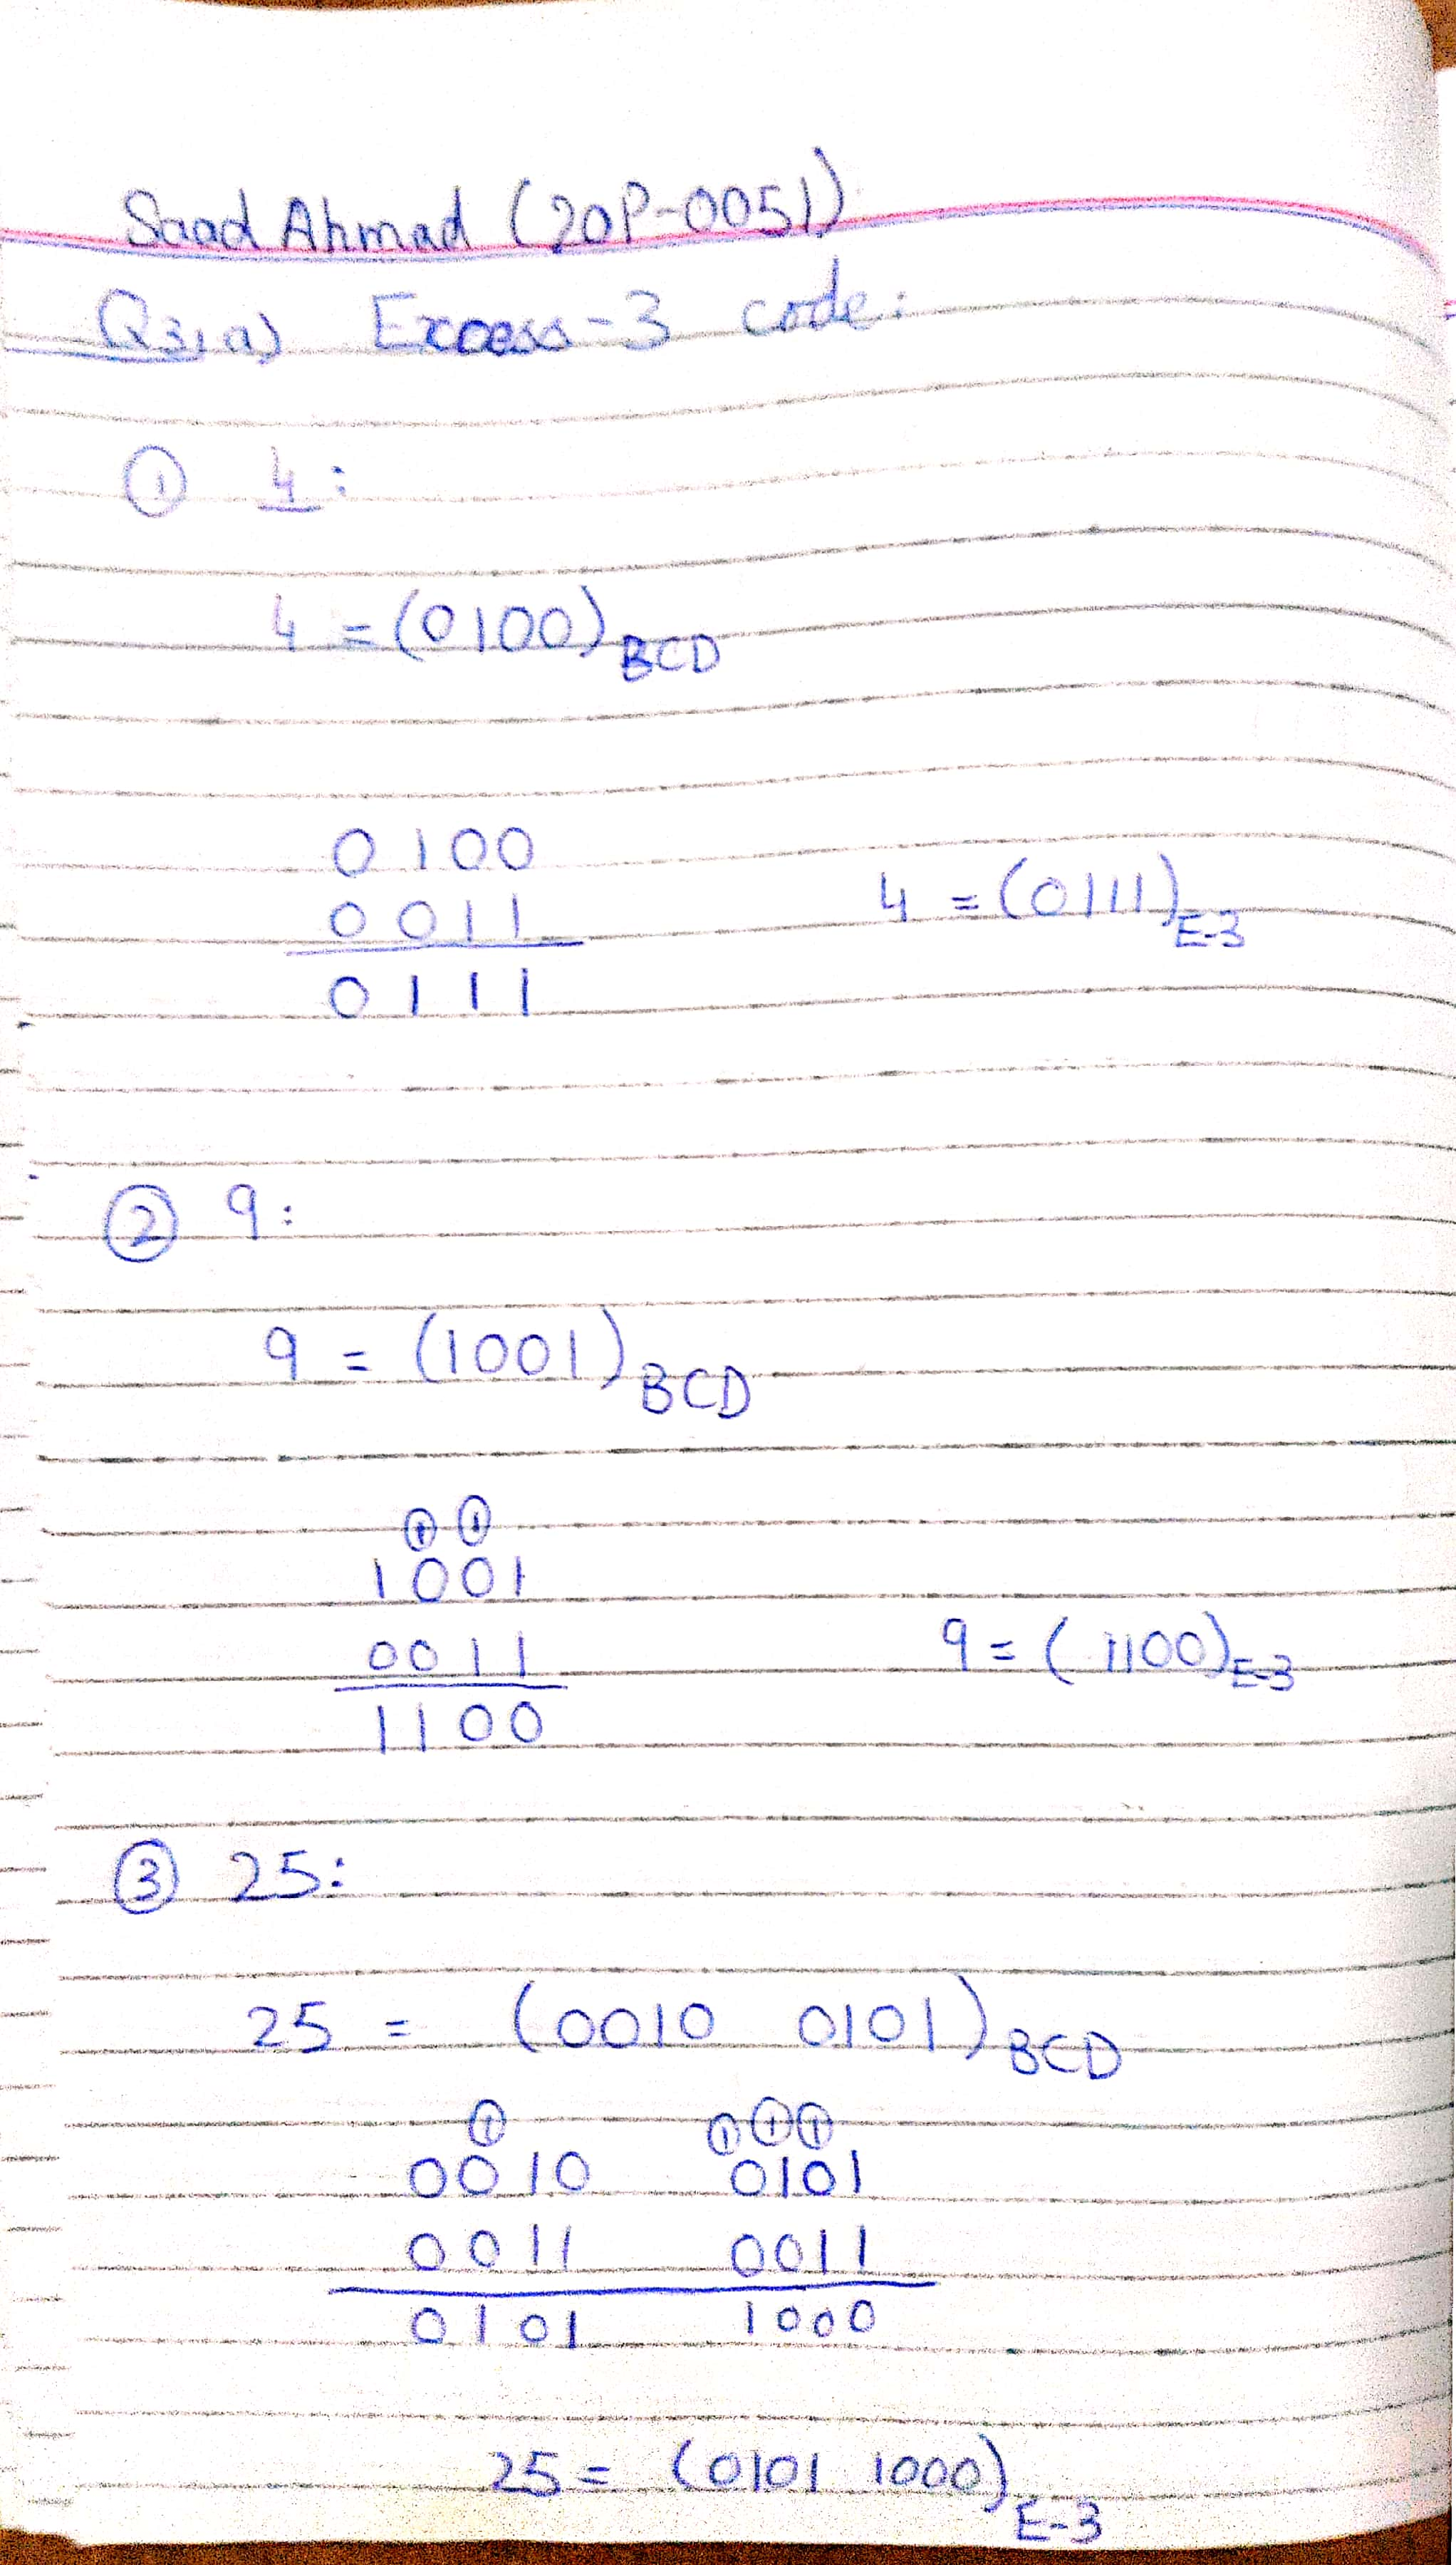 Saad Ahmad (20P-0051)
Q3,a) Excess-3 code:
① 4:
4 = (0100)BCD
0100
0011
0111
4 = (0111)E-3
② 9:
9 = (1001)BCD
① ①
1001
0011
1100
9 = (1100)E-3
③ 25:
25 = (0010 0101)BCD
① ①①①
0010 0101
0011 0011
0101 1000
25 = (0101 1000)E-3